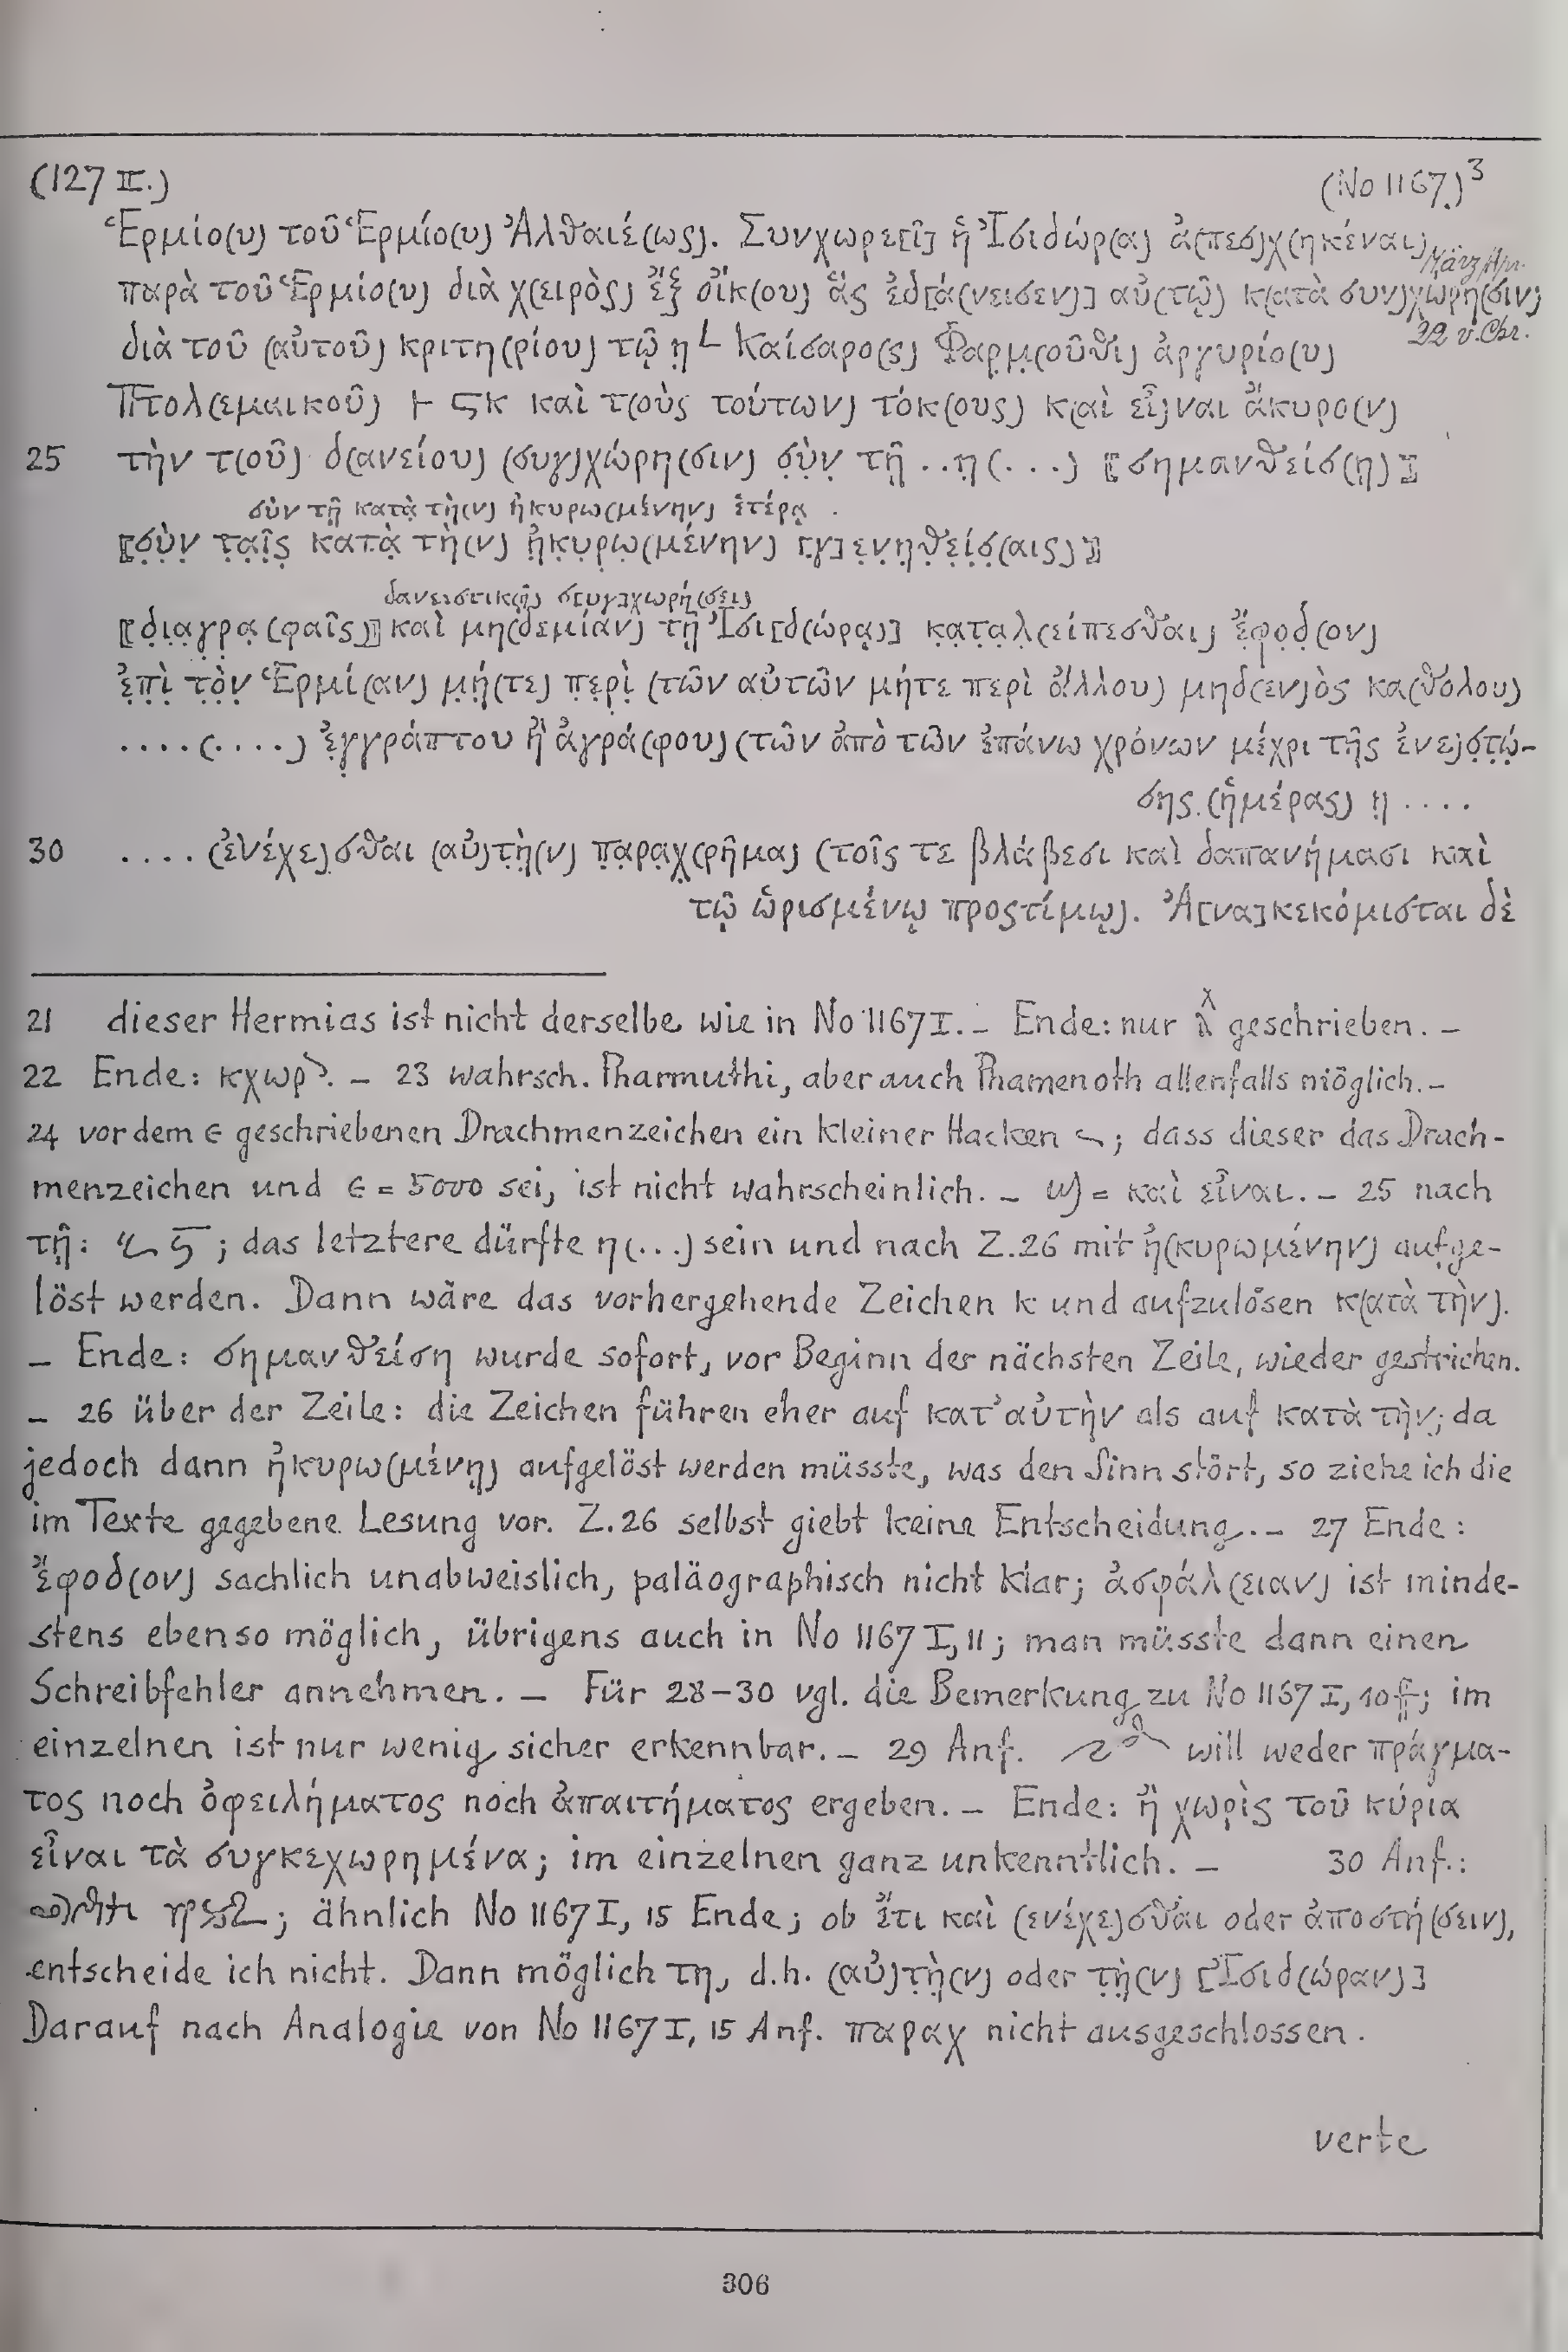 (127 II.) (No 1167.)³
Ἑρμίο(υ) τοῦ Ἑρμίο(υ) Ἀλθαιέ(ως). Συνχωρε[ῖ] ἡ Ἰσιδώρ(α) ἀ(πεσ)χ(ηκέναι)
März/Apr.
παρὰ τοῦ Ἑρμίο(υ) διὰ χ(ειρὸς) ἐξ οἴκ(ου) ἃς ἐδ[ά(νεισεν)] αὐ(τῷ) κ(ατὰ συν)χώρη(σιν)
22 v. Chr.
διὰ τοῦ (αὐτοῦ) κριτη(ρίου) τῷ η̣ L Καίσαρο(ς) Φαρ̣μ̣(οῦθι) ἀργυρίο(υ)
Πτολ(εμαικοῦ) ⊢ Ϛκ καὶ τ(οὺς τούτων) τόκ(ους) κ(αὶ εἶ)ναι ἄκυρο(ν)
25 τὴν τ(οῦ) δ(ανείου) (συγ)χώρη(σιν) σ̣ὺ̣ν τῇ ..η̣(...) ⟦σημανθείσ(ῃ)⟧
σὺν τῇ κατὰ̣ τὴ(ν) ἠκυρω(μένην) ἑτέρᾳ
⟦σ̣ὺ̣ν̣ τ̣α̣ῖ̣ς̣ κατὰ̣ τὴ(ν) ἠ̣κ̣υ̣ρ̣ω̣(μένην) [γ]ε̣ν̣η̣θ̣ε̣ί̣σ̣(αις)⟧
δανειστικ(ῇ) σ[υγ]χωρή(σει)
⟦δ̣ι̣α̣γ̣ρ̣α̣(φαῖς)⟧ καὶ μη(δεμίαν) τῇ Ἰσι[δ(ώρᾳ)] κ̣α̣τ̣α̣λ̣(είπεσθαι) ἔ̣φ̣ο̣δ̣(ον)
ἐ̣π̣ὶ̣ τ̣ὸ̣ν̣ Ἑρμί(αν) μ̣ή̣(τε) π̣ε̣ρ̣ὶ̣ (τῶν αὐτῶν μήτε περὶ ἄλλου) μηδ(εν)ὸς κα(θόλου)
....(....) ἐ̣γγράπτου ἢ ἀγρά(φου) (τῶν ἀπὸ τῶν ἐπάνω χρόνων μέχρι τῆς ἐνε)σ̣τ̣ώ̣-
σης (ἡμέρας) η̣ ....
30 .... (ἐνέχε)σθαι (αὐ)τ̣ὴ̣(ν) π̣α̣ρ̣α̣χ̣(ρῆμα) (τοῖς τε βλάβεσι καὶ δαπανήμασι καὶ
τῷ ὡρισμένῳ προςτίμῳ). Ἀ[να]κεκόμισται δὲ
21 dieser Hermias ist nicht derselbe wie in No 1167 I. – Ende: nur geschrieben. –
22 Ende: κχωρ. – 23 wahrsch. Pharmuthi, aber auch Phamenoth allenfalls möglich. –
24 vor dem ϵ geschriebenen Drachmenzeichen ein kleiner Hacken; dass dieser das Drach-
menzeichen und ϵ = 5000 sei, ist nicht wahrscheinlich. – = καὶ εἶναι. – 25 nach
τῇ: ; das letztere dürfte η(...) sein und nach Z. 26 mit ἠ(κυρωμένην) aufge-
löst werden. Dann wäre das vorhergehende Zeichen κ und aufzulösen κ(ατὰ τὴν).
– Ende: σημανθείση wurde sofort, vor Beginn der nächsten Zeile, wieder gestrichen.
– 26 über der Zeile: die Zeichen führen eher auf κατ᾽ αὐτὴν als auf κατὰ τὴν; da
jedoch dann ἠκυρω(μένῃ) aufgelöst werden müsste, was den Sinn stört, so ziehe ich die
im Texte gegebene Lesung vor. Z. 26 selbst giebt keine Entscheidung. – 27 Ende:
ἔφοδ(ον) sachlich unabweislich, paläographisch nicht klar; ἀσφάλ(ειαν) ist minde-
stens ebenso möglich, übrigens auch in No 1167 I, 11; man müsste dann einen
Schreibfehler annehmen. – Für 28–30 vgl. die Bemerkung zu No 1167 I, 10 ff; im
einzelnen ist nur wenig sicher erkennbar. – 29 Anf. will weder πράγμα-
τος noch ὀφειλήματος noch ἀπαιτήματος ergeben. – Ende: ἢ χωρὶς τοῦ κύρια
εἶναι τὰ συγκεχωρημένα; im einzelnen ganz unkenntlich. – 30 Anf.:
; ähnlich No 1167 I, 15 Ende; ob ἔτι καὶ (ενέχε)σθαι oder ἀποστή(σειν),
entscheide ich nicht. Dann möglich τη, d.h. (αὐ)τ̣ὴ̣(ν) oder τ̣ὴ̣(ν) [Ἰσιδ(ώραν)]
Darauf nach Analogie von No 1167 I, 15 Anf. παραχ nicht ausgeschlossen.
verte
306